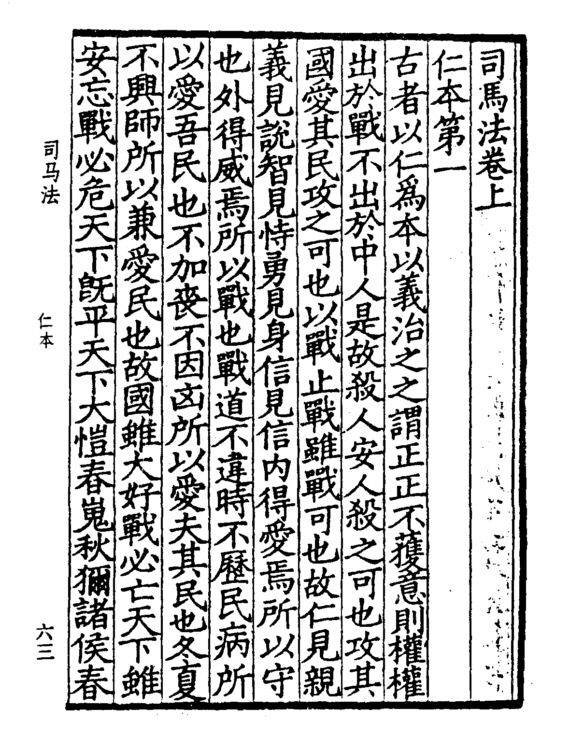 司馬法卷上
仁本第一
古者以仁爲本以義治之之謂正正不獲意則權權
出於戰不出於中人是故殺人安人殺之可也攻其
國愛其民攻之可也以戰止戰雖戰可也故仁見親
義見說智見恃勇見身信見信内得愛焉所以守
也外得威焉所以戰也戰道不違時不歷民病所
以愛吾民也不加喪不因凶所以愛夫其民也冬夏
不興師所以兼愛民也故國雖大好戰必亡天下雖
安忘戰必危天下既平天下大愷春蒐秋獮諸侯春
司马法
仁本
六三